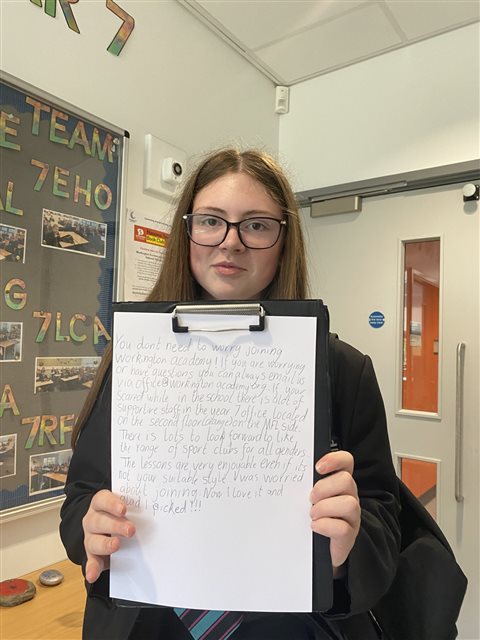 AR 7
TEAM
7EHO
7LCA
7RF
You dont need to worry joining
Workington academy! If you are worrying
or have questions you can always email us
via office@workingtonacademy.org. If your
scared while in the school there is alot of
supportive staff in the year 7 office located
on the second floor (orange) on the MFL side.
There is lots to look forward to like
the range of sport clubs for all genders
The lessons are very enjoyable even if its
not your suitable style I was worried
about joining Now I love it and
glad I picked!!!